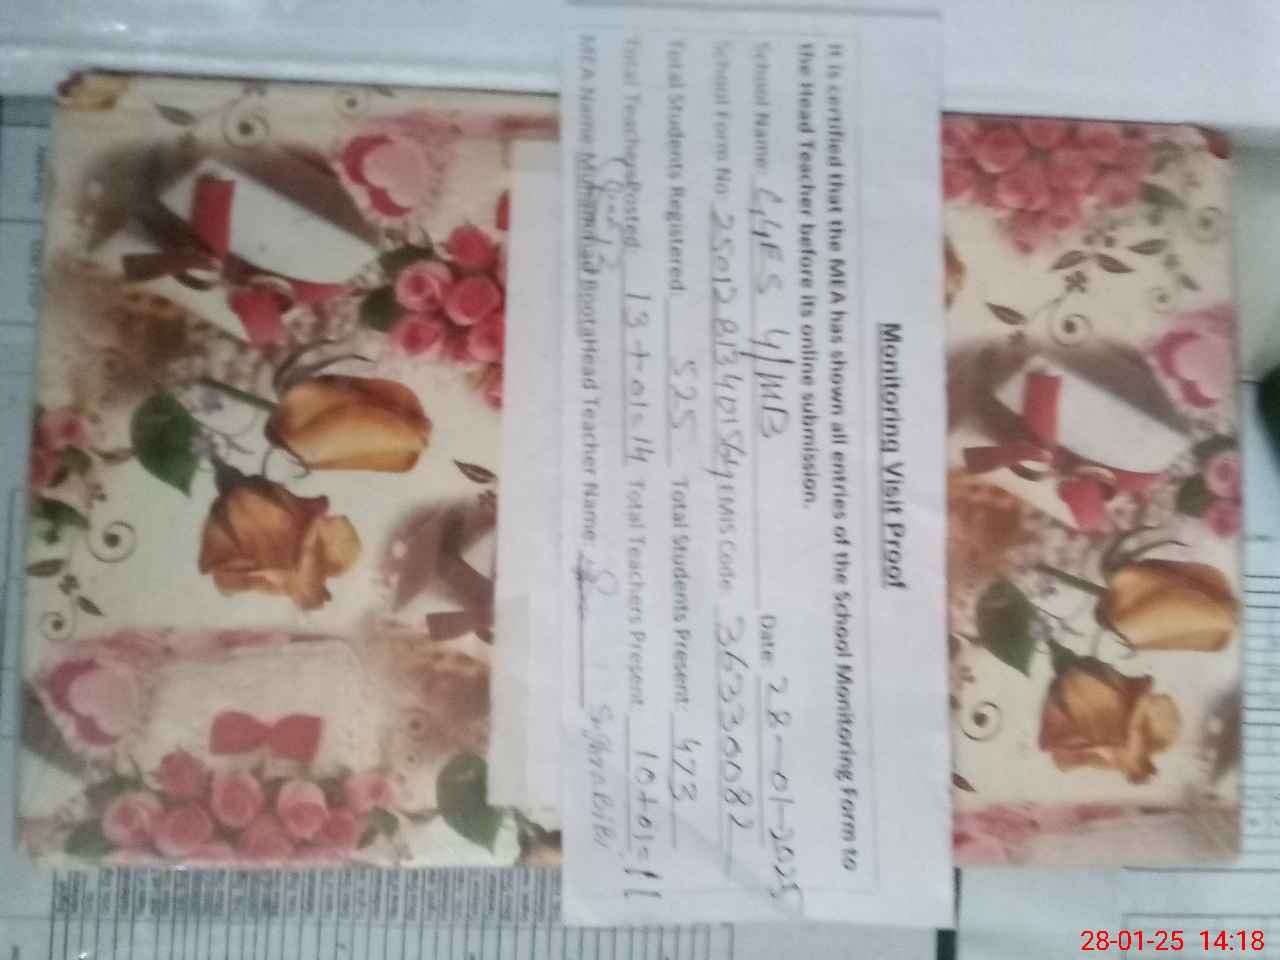 Monitoring Visit Proof
It is certified that the MEA has shown all entries of the School Monitoring Form to
the Head Teacher before its online submission.
School Name: GGES 4/MB Date: 28-01-2025
School Form No. EMIS Code: 36330082
Total Students Registered: 525 Total Students Present: 473
Total Teachers Posted: 13+01=14 Total Teachers Present: 10+01=11
MEA Name: Muhammad Boota Head Teacher Name: Sughra Bibi
28-01-25 14:18